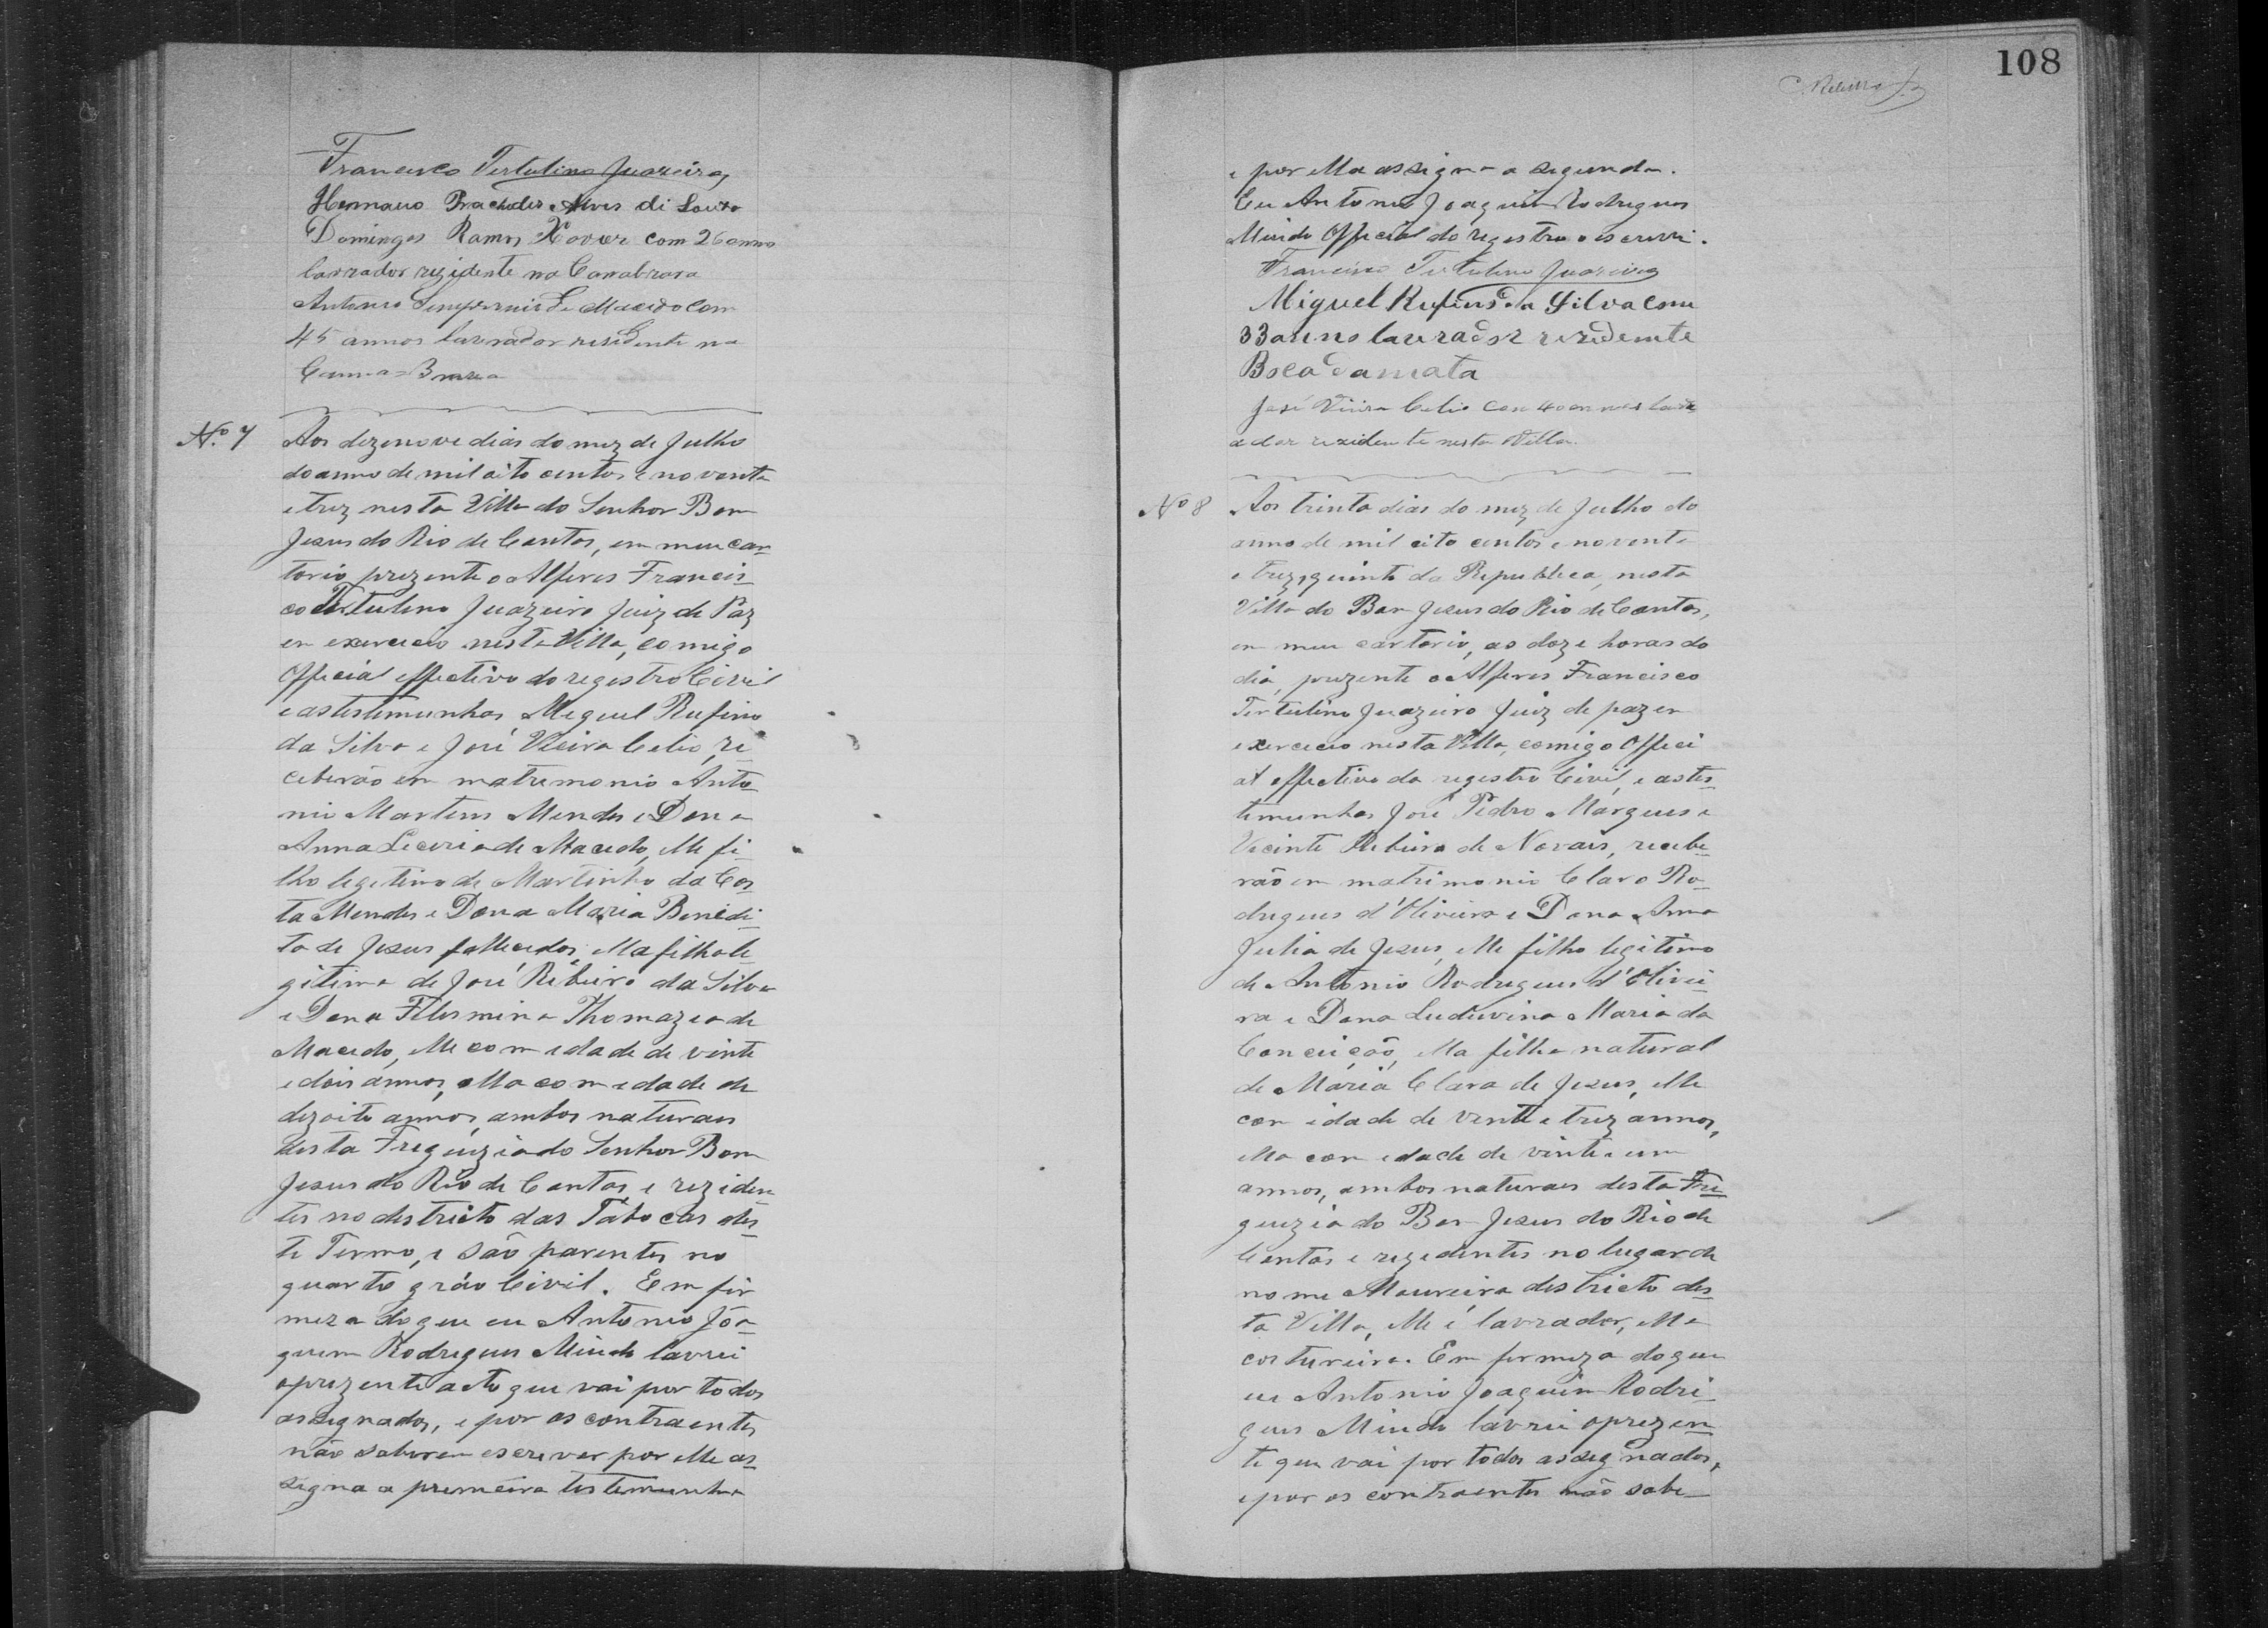 Francisco Tertulino Juazeiro
Hermano Prachedes Alves di Souza
Domingos Ramos Xavier com 26 annos
lavrador rezidente na Canabrava
Antonio de Macedo com
45 annos lavrador residente na
Canna-Brava
N.º 7 Aos dezenove dias do mez de Julho
do anno de mil oito centos e noventa
e trez nesta Villa do Senhor Bom
Jesus do Rio de Contas, em meu car-
torio prezente o Alferes Francis-
co Tertulino Juazeiro Juiz de Paz
em exercicio nesta Villa, comigo
Official effectivo do registro Civil
e as testimunhas Miguel Rufino
da Silva e José Vieira Celio, re-
ceberão em matrimonio Anto-
nio Martins Mendes e Dona
Anna de Macedo, elle fi-
lho legitimo de Martinho da Cos-
ta Mendes e Dona Maria Benedi-
ta de Jesus fallecidos, ella filha le-
gitima de José Ribeiro da Silva
e Dona Felismina Thomazia de
Macedo, elle com edade de vinte
e dois annos, ella com edade de
dezoito annos, ambos naturaes
desta Freguezia do Senhor Bom
Jesus do Rio de Contas, e reziden-
tes no destricto das Tabocas des-
te Termo, e são parentes no
quarto gráo Civil. Em fir
meza do que eu Antonio Joa-
quim Rodrigues Miudo lavrei
o prezente acto que vai por todos
assignados, e por os contraentes
não saberem escrever por elle as-
signa a premeira testemunha
108
e por ella assigna a segunda.
Eu Antonio Joaquim Rodrigues
Miudo Official do registro o escrevi.
Francisco Tertulino Juazeiro
Miguel Rufino da Silva com
33 annos lavrador rezidente
Boca da mata
José Vieira Celio com 40 annos lavr
ador rezidente nesta Villa.
Nº 8 Aos trinta dias do mez de Julho do
anno de mil oito centos e novente
e trez, quinto da Republica, nesta
Villa do Bom Jesus do Rio de Contas,
em meu cartorio, as doze horas do
dia, prezente o Alferes Francisco
Tertulino Juazeiro Juiz de paz em
exercicio nesta Villa, comigo Offici
al effectivo do registro Civil, e as tes-
timunhas José Pedro Marques e
Vicente Ribeiro de Novais, recebe-
rão em matrimonio Claro Ro-
drigues d'Oliveira e Dona Anna
Julia de Jesus, elle filho legitimo
de Antonio Rodrigues d'Olivei-
ra e Dona Luduvina Maria da
Conceição, ella filha natural
de Maria Clara de Jesus, elle
com idade de vinte e trez annos,
ella com edade de vinte e um
annos, ambos naturaes desta Fre-
guezia do Bom Jesus do Rio de
Contas e rezidentes no lugar de
nome Moureira destricto des-
ta Villa, elle é lavrador, ella
costureira. Em firmeza do que
eu Antonio Joaquim Rodri-
gues Miudo lavrei o prezen-
te que vai por todos assignados,
e por os contraentes não sabe-